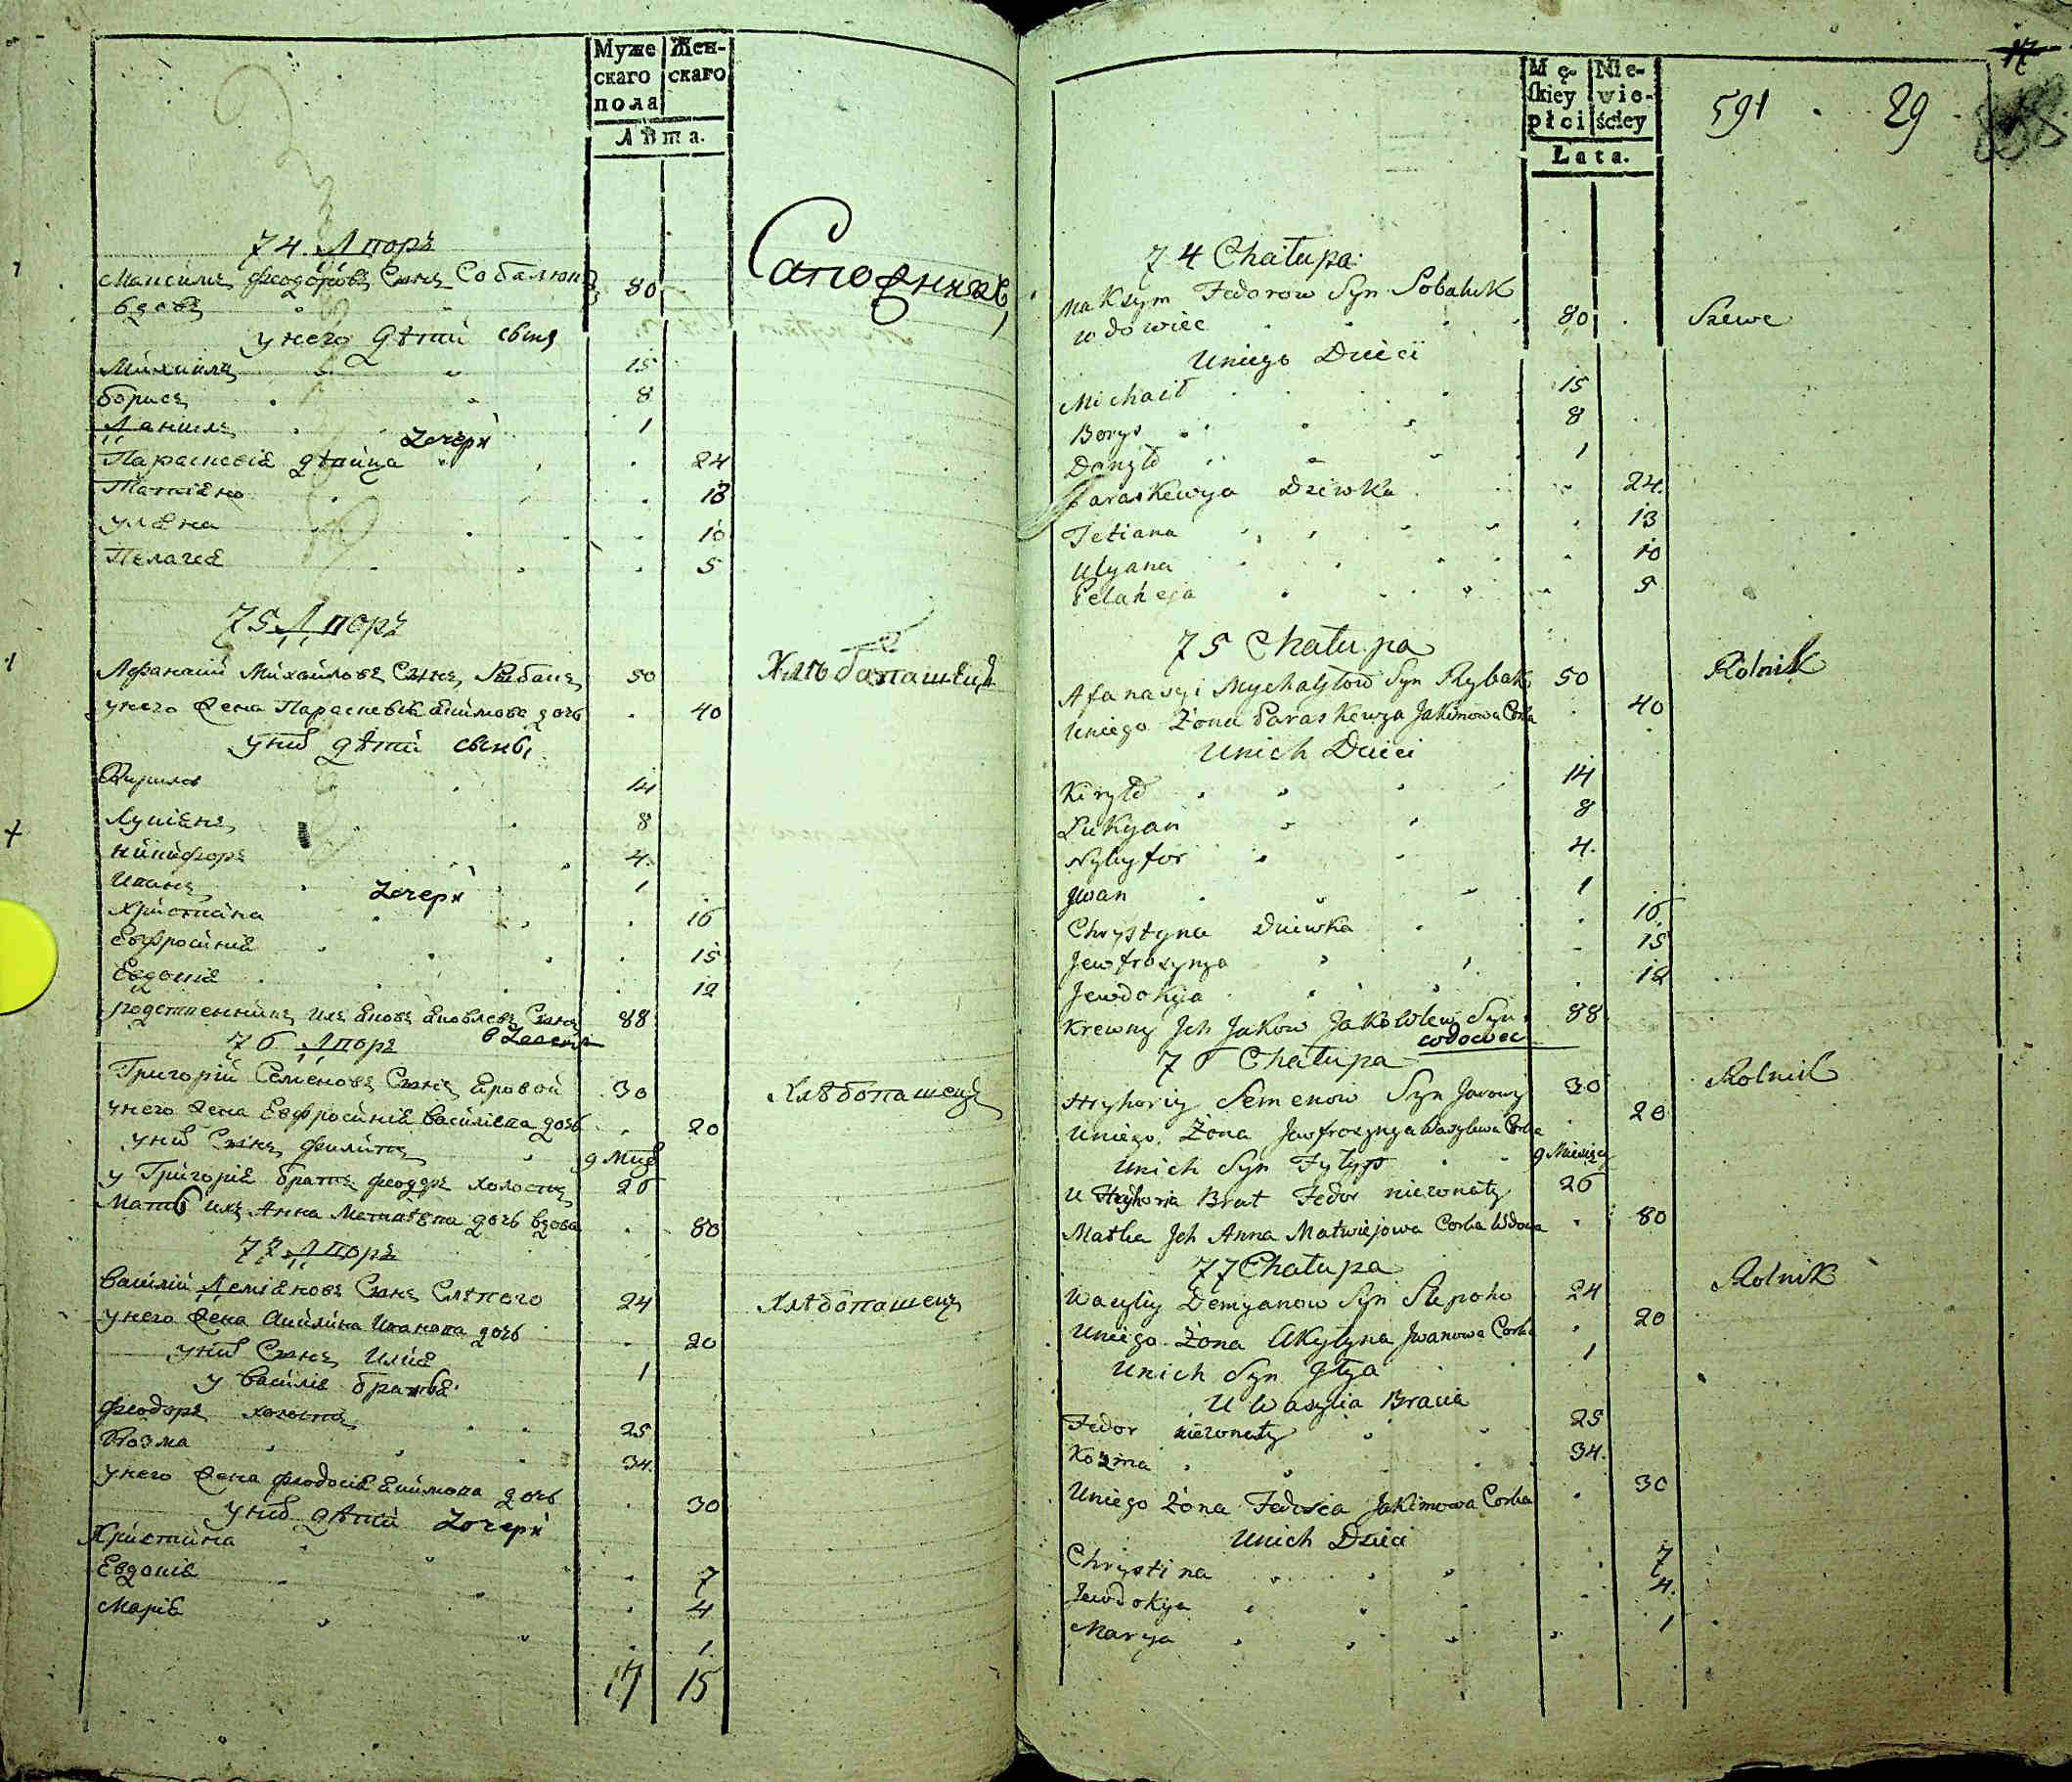 Муже
скаго
пола
Жен-
скаго
Лѣта.
74 Дворъ
Максимъ Феодоровъ Сынъ Собалюкъ 80 Сапожникъ
вдовъ
у него дѣти сыня
Михаилъ 15
Борисъ 8
Данилъ 1
дочери
Параскевія дѣвица 24
Татіяна 13
Уляна 10
Пелагея 5
75 Дворъ
Афанасій Михайловъ Сынъ Рыбакъ 50 Хлѣбопашецъ
у него жена Параскевія Якимова дочь 40
у нихъ дѣти сыны
Кирило 14
Лукіянъ 8
Никифоръ 4
Иванъ 1
дочери
Христина 16
Евфросинія 15
Евдокія 12
родственникъ ихъ Яковъ Яковлевъ Сынъ 88
вдовецъ
76 Дворъ
Григорій Семеновъ Сынъ Яровой 30 Хлѣбопашецъ
у него жена Евфросинія Василіева дочь 20
у нихъ Сынъ Филипъ 9 Мцъ
у Григорія братъ Феодоръ холостъ 26
Мать ихъ Анна Матвѣева дочь вдова 80
77 Дворъ
Василій Деміяновъ Сынъ Слѣпого 24 Хлѣбопашецъ
у него жена Акилина Иванова дочь 20
у нихъ Сынъ Илія 1
у Василія братья
Феодоръ холостъ 25
Козма 34
у него жена Феодосія Якимова дочь 30
у нихъ дѣти дочери
Христина 7
Евдокія 4
Марія 1
17 15
Mę-
skiey
płci
Nie-
wie-
ściey
Łata.
17
591 . 29
74 Chałupa
Maksym Fedorow Syn Sobaluk
wdowiec 80 Szewc
Uniego Dzieci
Michaił 15
Borys 8
Danyło 1
Paraskewya Dziwka 24
Tetiana 13
Ulyana 10
Pelaheja 5
75 Chałupa
Afanasyi Mychałyłow Syn Rybak 50 Rolnik
Uniego Żona Paraskewya Jakimowa Corka 40
Unich Dzieci
Kiryło 14
Lukyan 8
Nykyfor 4
Jwan 1
Chrystyna Dziwka 16
Jewfrosynya 15
Jewdokija 12
Krewny Jch Jakow Jakowlew Syn 88
wdowiec
76 Chałupa
Hryhoriy Semenow Syn Jarowy 30 Rolnik
Uniego Żona Jewfrosynya Wasylewa Corka 20
Unich Syn Fylyp 9 Miesięcy
U Hryhoria Brat Fedor niezonaty 26
Matka Jch Anna Matwiejowa Corka Wdowa 80
77 Chałupa
Wasyliy Demyanow Syn Slepoho 24 Rolnik
Uniego Żona Akylyna Jwanowa Corka 20
Unich Syn Jlya 1
U Wasylia Bracia
Fedor niezonaty 25
Kozma 34
Uniego Żona Fedosia Jakimowa Corka 30
Unich Dzieci
Chrystina 7
Jewdokija 4
Marya 1